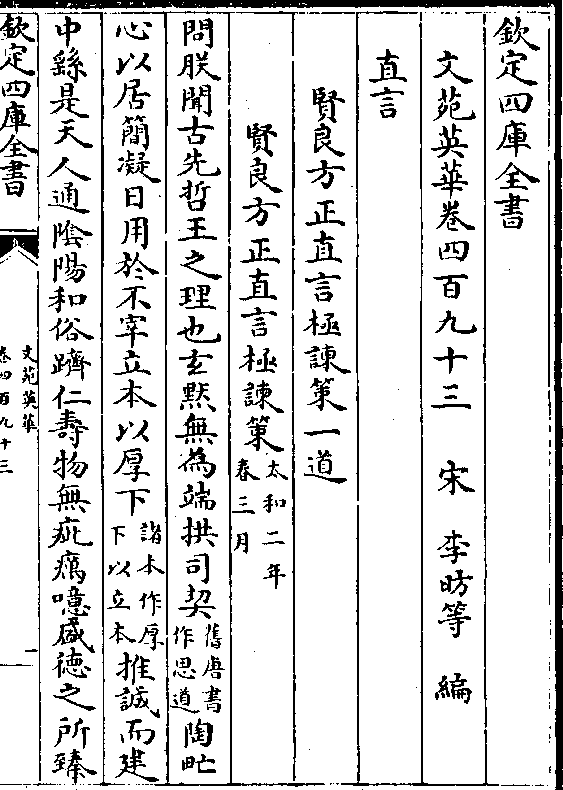 欽定四庫全書
文苑英華卷四百九十三　宋　李昉等　編
直言
賢良方正直言極諫策一道
賢良方正直言極諫策太和二年春三月
問朕聞古先哲王之理也玄默無為端拱司契舊唐書作思道陶甿
心以居簡凝日用於不宰立本以厚下諸本作厚下以立本推誠而建
中繇是天人通陰陽和俗躋仁壽物無疵癘噫盛徳之所臻
欽定四庫全書
文苑英華
卷四百九十三
一